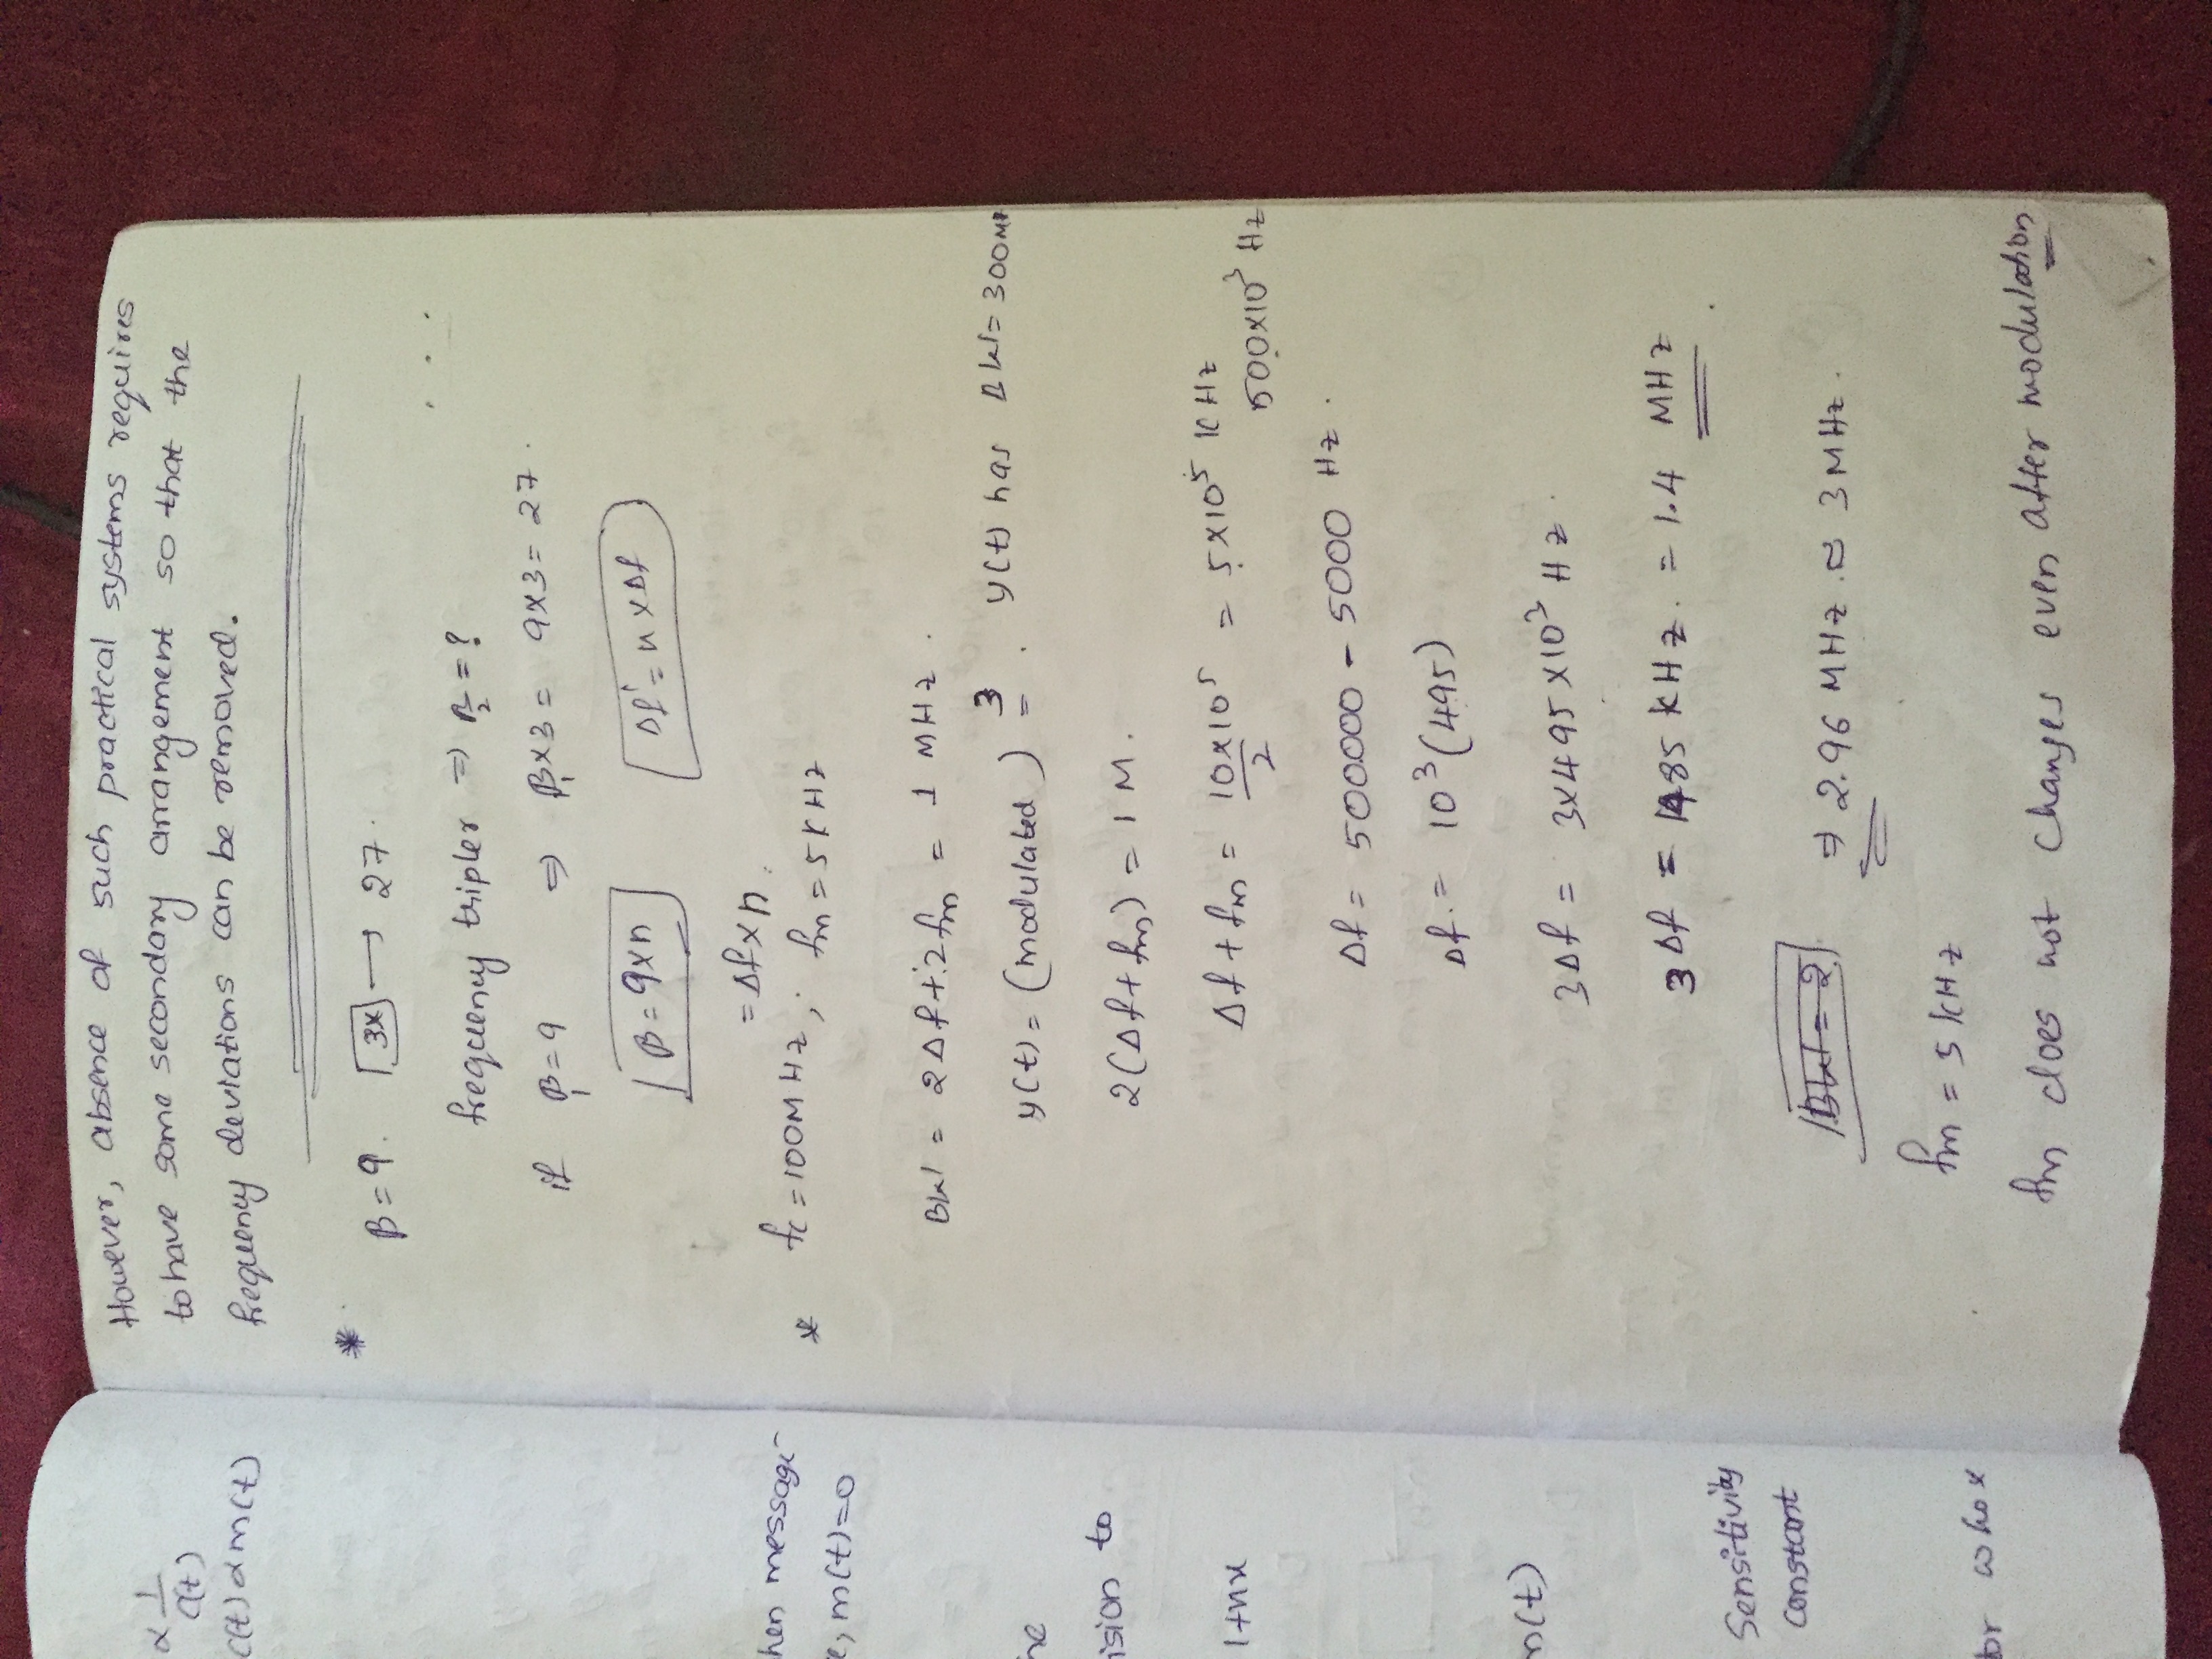 ∝ 1/C(t)
C(t) ∝ m(t)
hen message
e, m(t)=0
he
ision to
1+nx
m(t)
Sensitivity
constant
tor whox
However, absence of such practical systems requires
to have some secondary arrangement so that the
frequency deviations can be removed.
* β=9. 3x → 27.
frequency tripler ⇒ β₂ = ?
if β₁=9 ⇒ β₁×3 = 9×3 = 27.
β = 9×n Δf' = n×Δf
= Δf×n.
* fc = 100 MHz, ; fm = 5 KHz
BW = 2Δf + 2fm = 1 MHz.
y(t) = (modulated)³. y(t) has BW = 300M
2(Δf+fm) = 1 M.
Δf + fm = 10×10⁵/2 = 5×10⁵ KHz
500×10³ Hz
Δf = 500000 - 5000 Hz.
Δf. = 10³(495)
3Δf = 3×495×10³ Hz.
3Δf = 1485 KHz. = 1.4 MHz
BW = 2 ⇒ 2.96 MHz. ≈ 3 MHz.
fm = 5 KHz
fm does not changes even after modulation